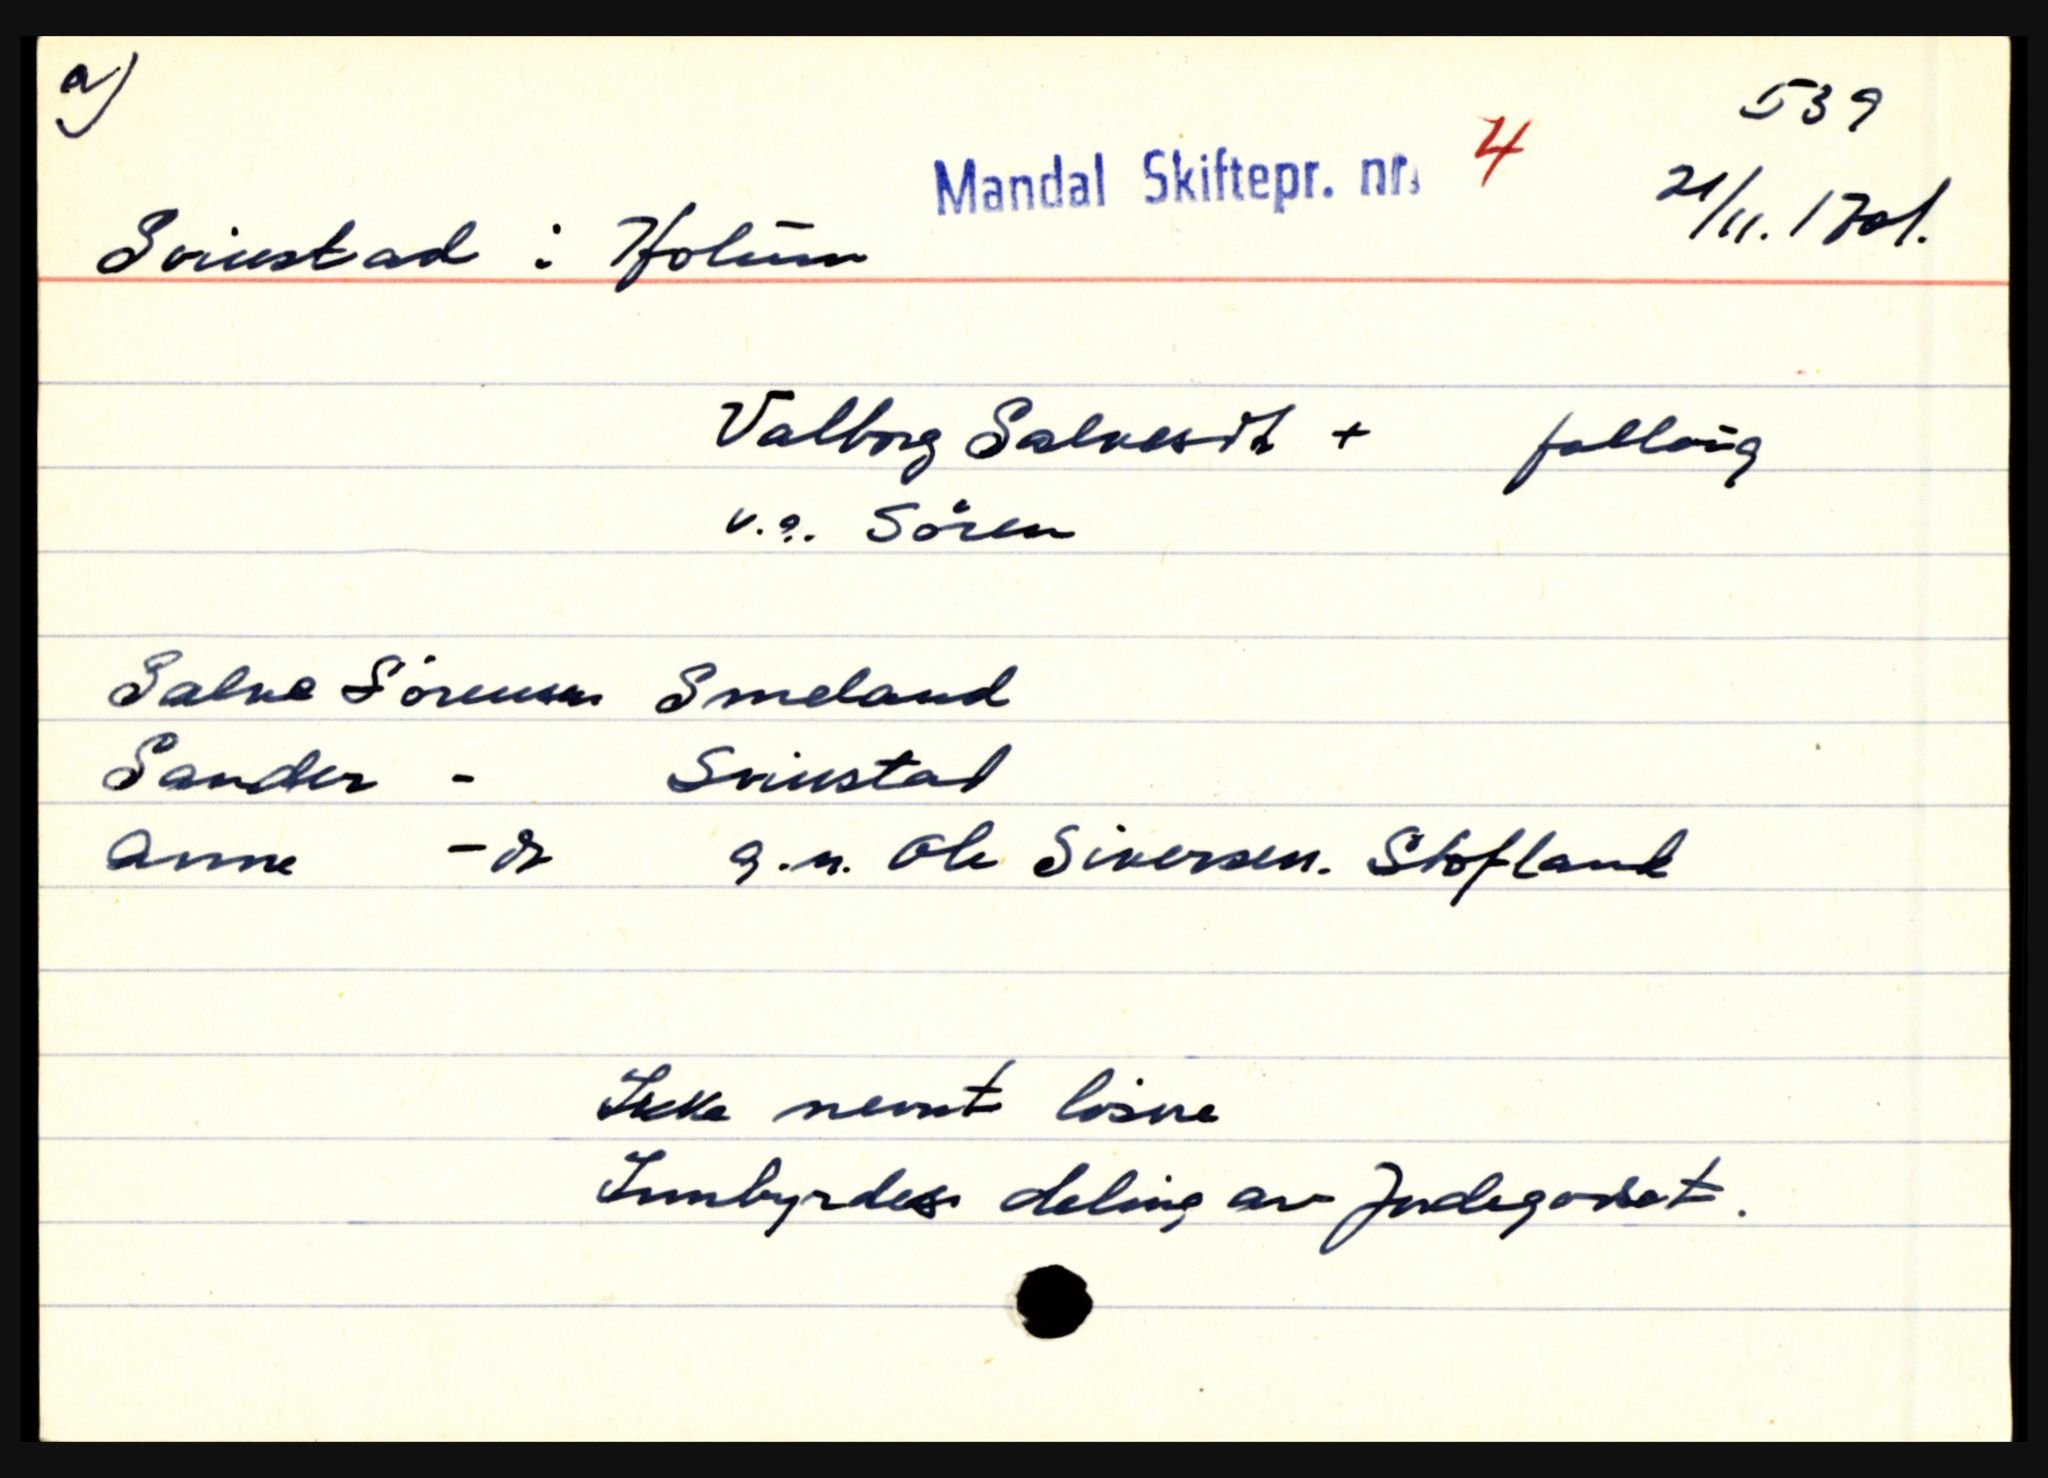 a)
539
Mandal Skiftepr. nr. 4
21/11. 1701.
Svinstad i Holum
Valborg Salvesdt + fallöig
v. g. Sören
Salve Sörensen Smeland
Sander - Svinstad
Anne - dr g.m. Ole Siversen. Stofland
Ikke nevnt lösöre
Innbyrdes deling av Jordegodset.